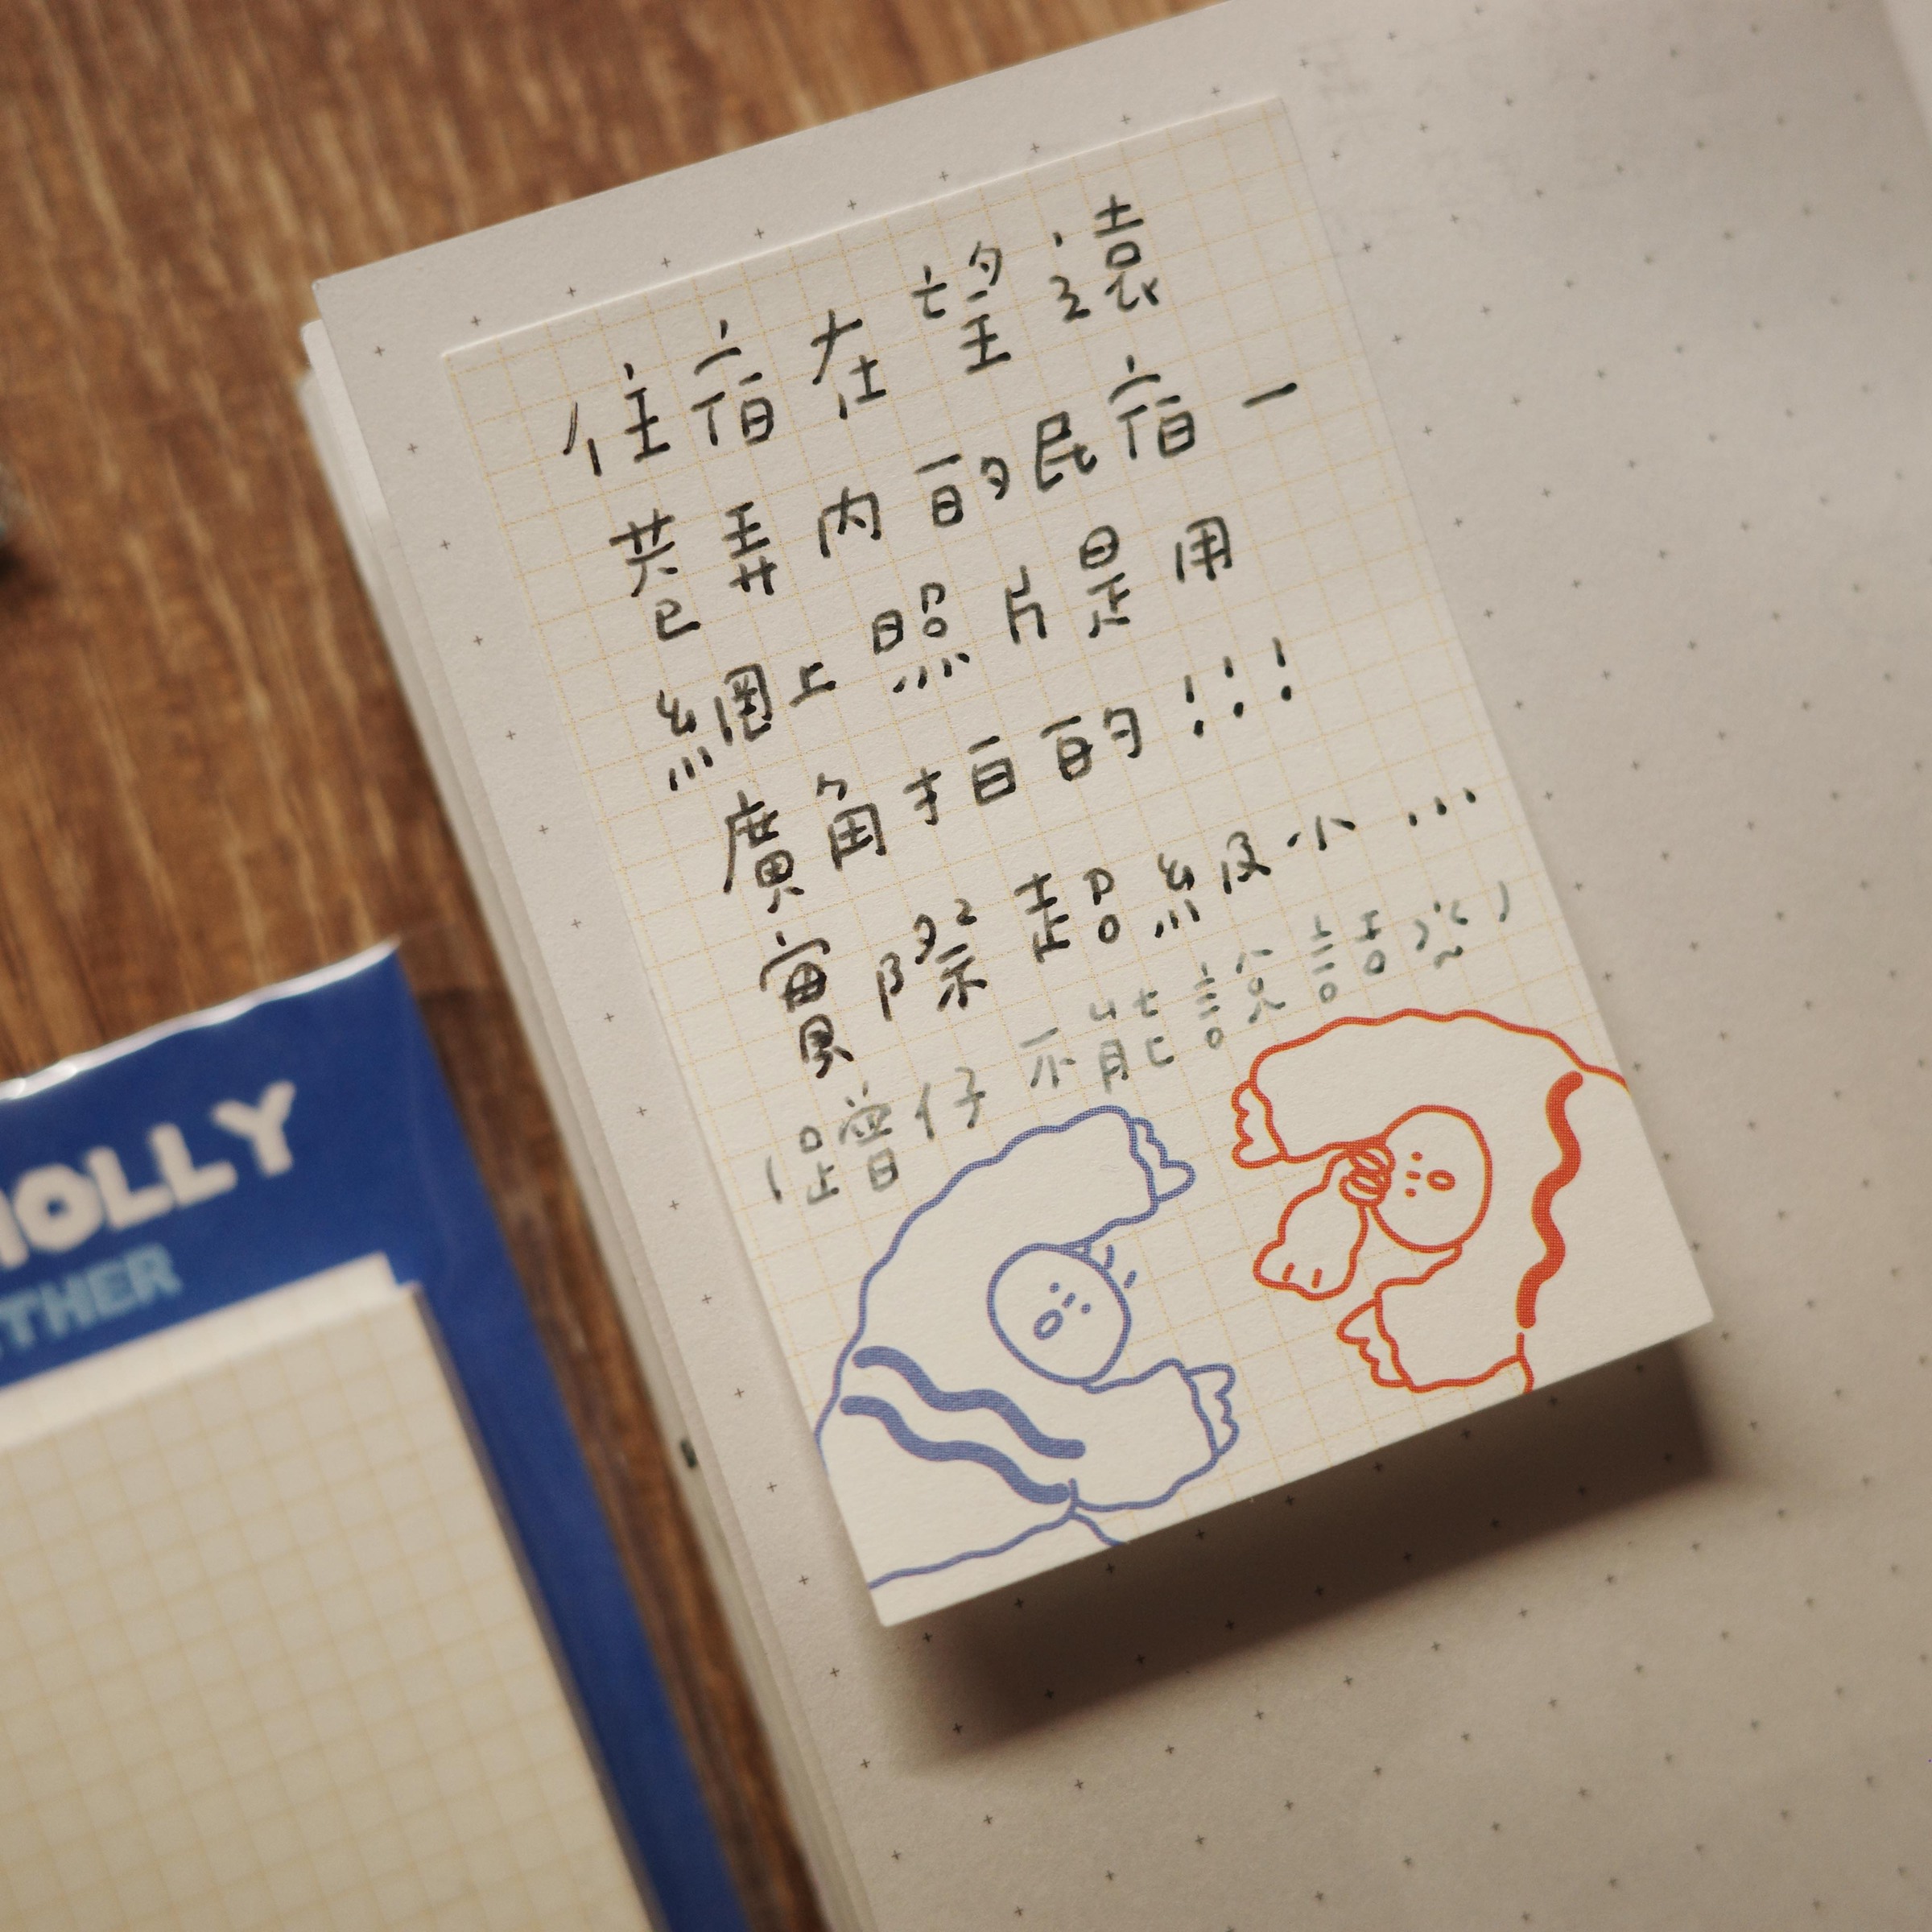 住宿在望遠
巷弄內的民宿一
網上照片是用
廣角拍的!!!
實際超級小...
(蹭仔不能說話 )
MOLLY